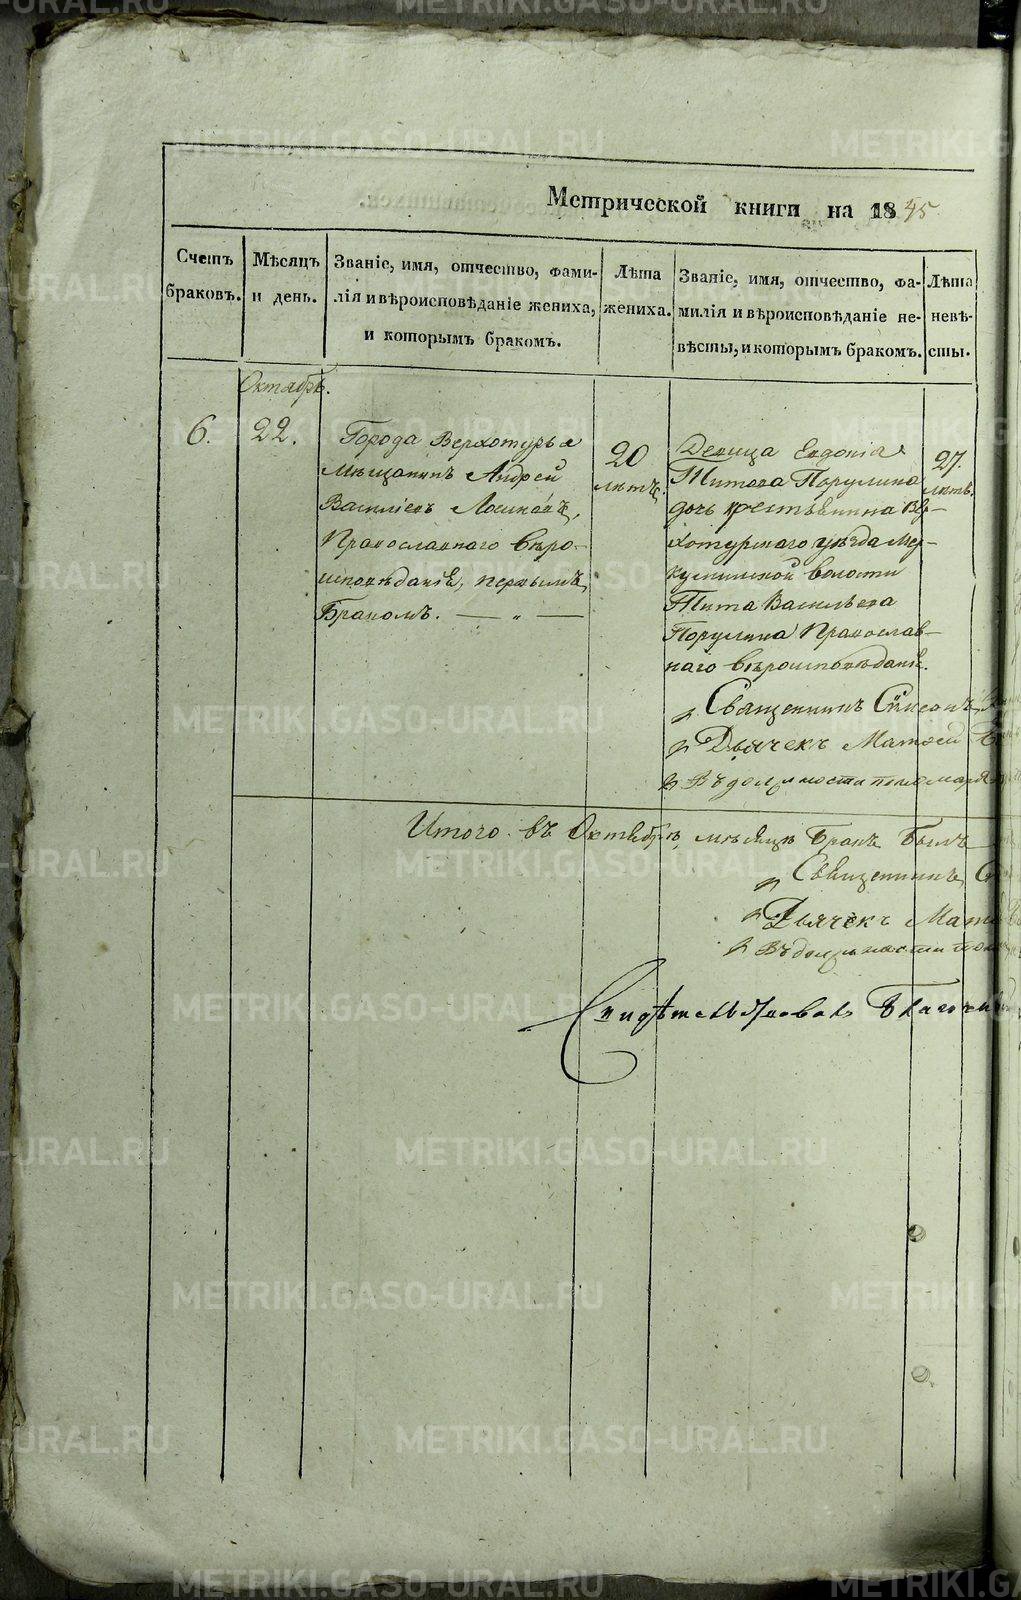 Метрической книги на 1845
Счетъ браковъ.
Мѣсяцъ и день.
Званіе, имя, отчество, фами-
лія и вѣроисповѣданіе жениха,
и которымъ бракомъ.
Лѣта жениха.
Званіе, имя, отчество, фа-
милія и вѣроисповѣданіе не-
вѣсты, и которымъ бракомъ.
Лѣта невѣ-
сты.
Октябрь.
6.
22.
Города Верхотурья
Мѣщанинъ Андрей
Васильевъ
Православнаго вѣро-
исповѣданіе, первымъ
Бракомъ. — „ —
20
лѣтъ.
Девица Евдокія
Титова
дочь крестьянина Вер-
хотурскаго уѣзда Мер-
кушинской волости
Тита Васильева
Православ-
наго вѣроисповѣданіе.
27.
лѣтъ.
Священникъ Симеонъ
Дьячекъ Матвей
Въ должности пономаря
Итого въ Октябрѣ мѣсяцѣ Бракъ Былъ
Священникъ
Дьячекъ
Въ должности
Свидѣтельствовалъ
METRIKI.GASO-URAL.RU